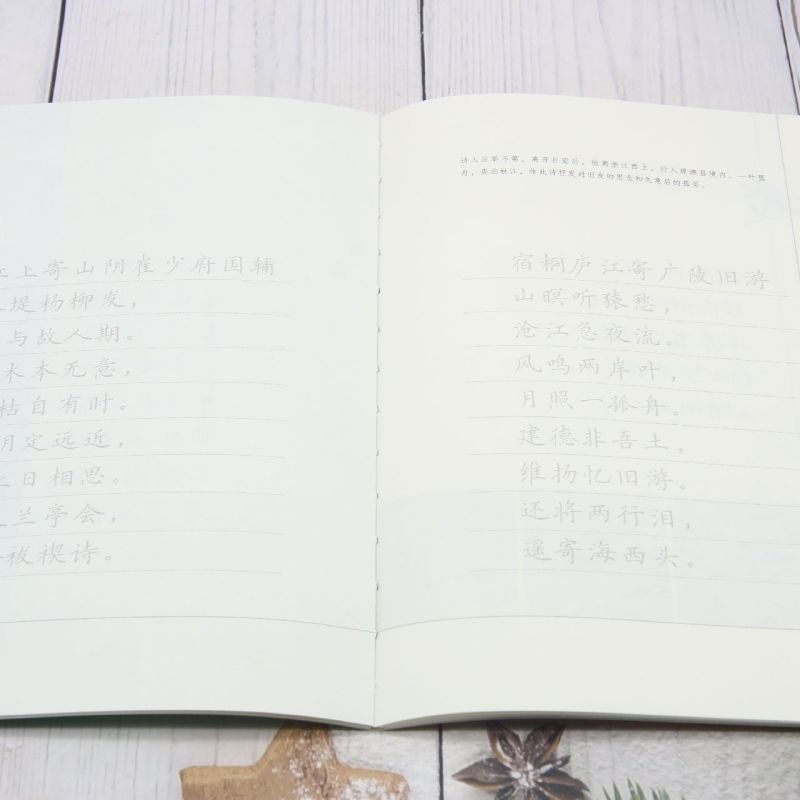 上寄山阴崔少府国辅
堤杨柳发，
与故人期。
木本无意，
枯自有时。
阴定远近，
上日相思。
兰亭会，
祓禊诗。
诗人应举不第，离开长安后，他离浙江西上，行入建德县境内。一叶孤
舟，夜泊秋江，作此诗抒发对旧友的思念和失意后的孤苦。
宿桐庐江寄广陵旧游
山暝听猿愁，
沧江急夜流。
风鸣两岸叶，
月照一孤舟。
建德非吾土，
维扬忆旧游。
还将两行泪，
遥寄海西头。